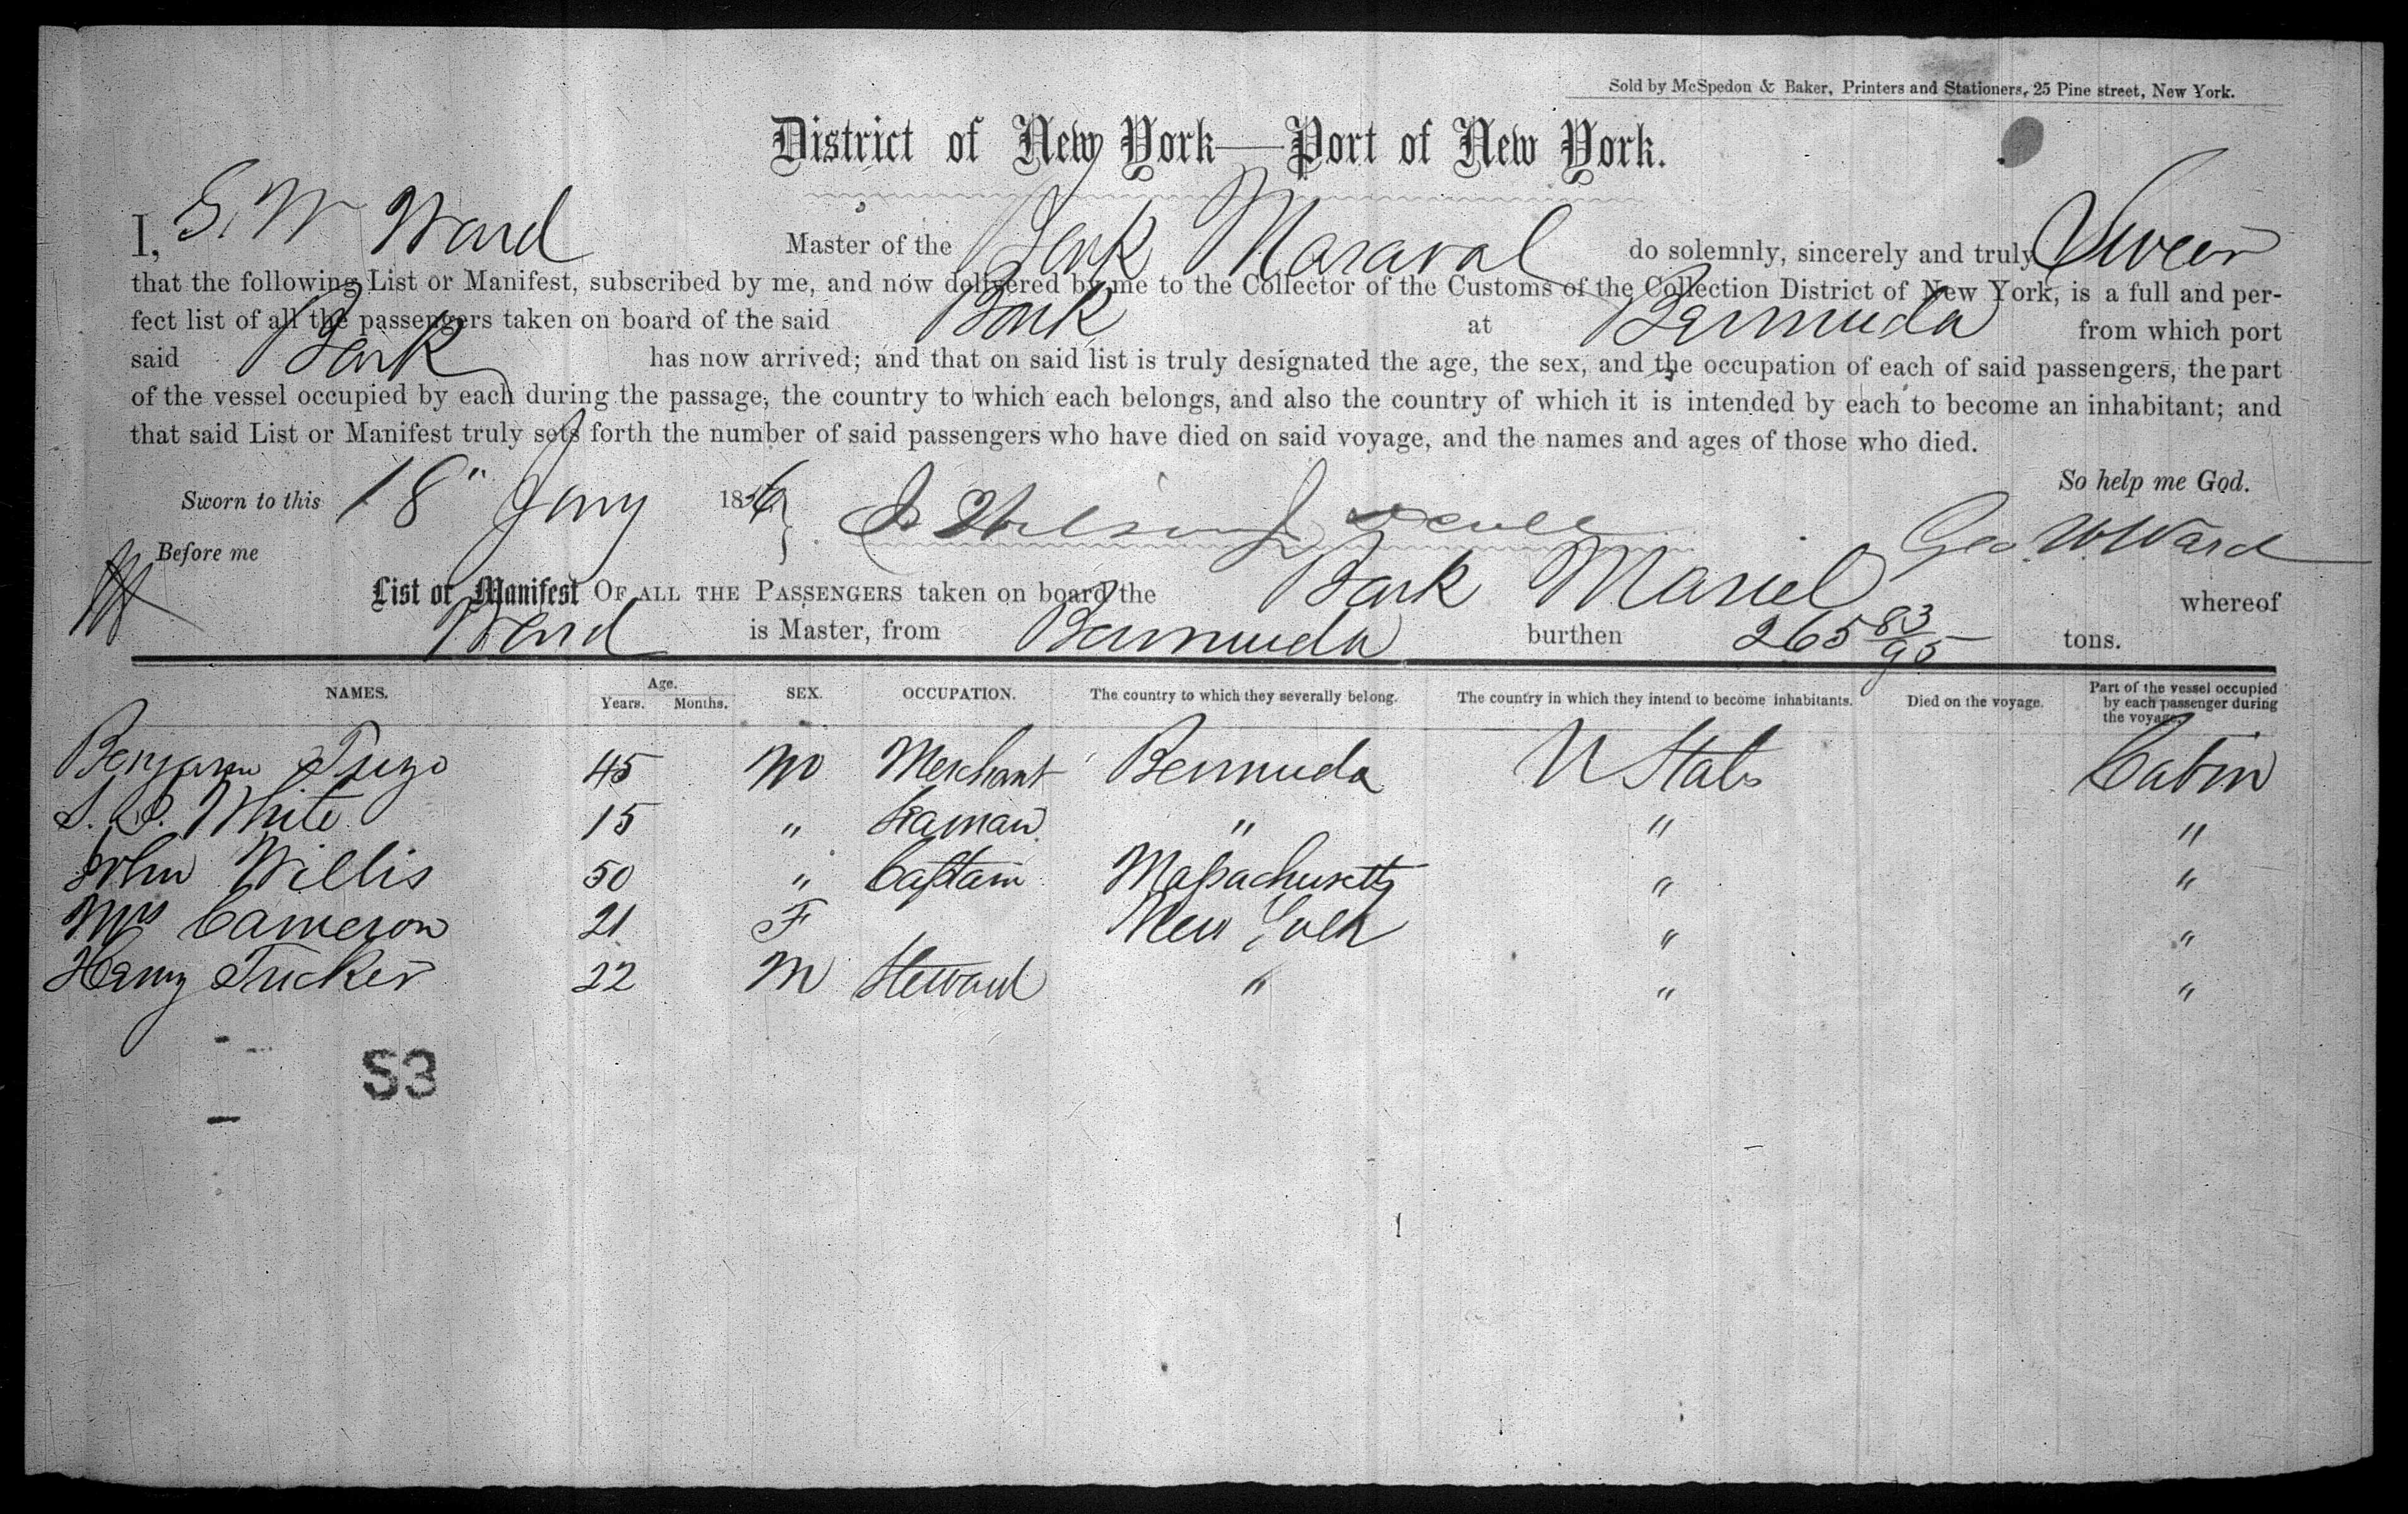 Sold by McSpedon & Baker, Printers and Stationers, 25 Pine street, New York.
District of New York—Port of New York.
I, G. W Ward Master of the Bark Maraval do solemnly, sincerely and truly Swear
that the following List or Manifest, subscribed by me, and now delivered by me to the Collector of the Customs of the Collection District of New York, is a full and per-
fect list of all the passengers taken on board of the said Bark at Bermuda from which port
said Bark has now arrived; and that on said list is truly designated the age, the sex, and the occupation of each of said passengers, the part
of the vessel occupied by each during the passage, the country to which each belongs, and also the country of which it is intended by each to become an inhabitant; and
that said List or Manifest truly sets forth the number of said passengers who have died on said voyage, and the names and ages of those who died.
So help me God.
Sworn to this 18" Jany 1856
Geo W Ward
Before me
List or Manifest OF ALL THE PASSENGERS taken on board the Bark Mariel whereof
Ward is Master, from Bermuda burthen 265 83/95 tons.
NAMES. Age. Years. Months. SEX. OCCUPATION. The country to which they severally belong. The country in which they intend to become inhabitants. Died on the voyage. Part of the vessel occupied by each passenger during the voyage.
Benjamin Tuzo 45 M Merchant Bermuda U States Cabin
S. S. White 15 " Seaman " " "
John Willis 50 " Captain Massachusetts " "
Mrs Cameron 21 F New York " "
Harry Tucker 22 M Steward " " "
S3